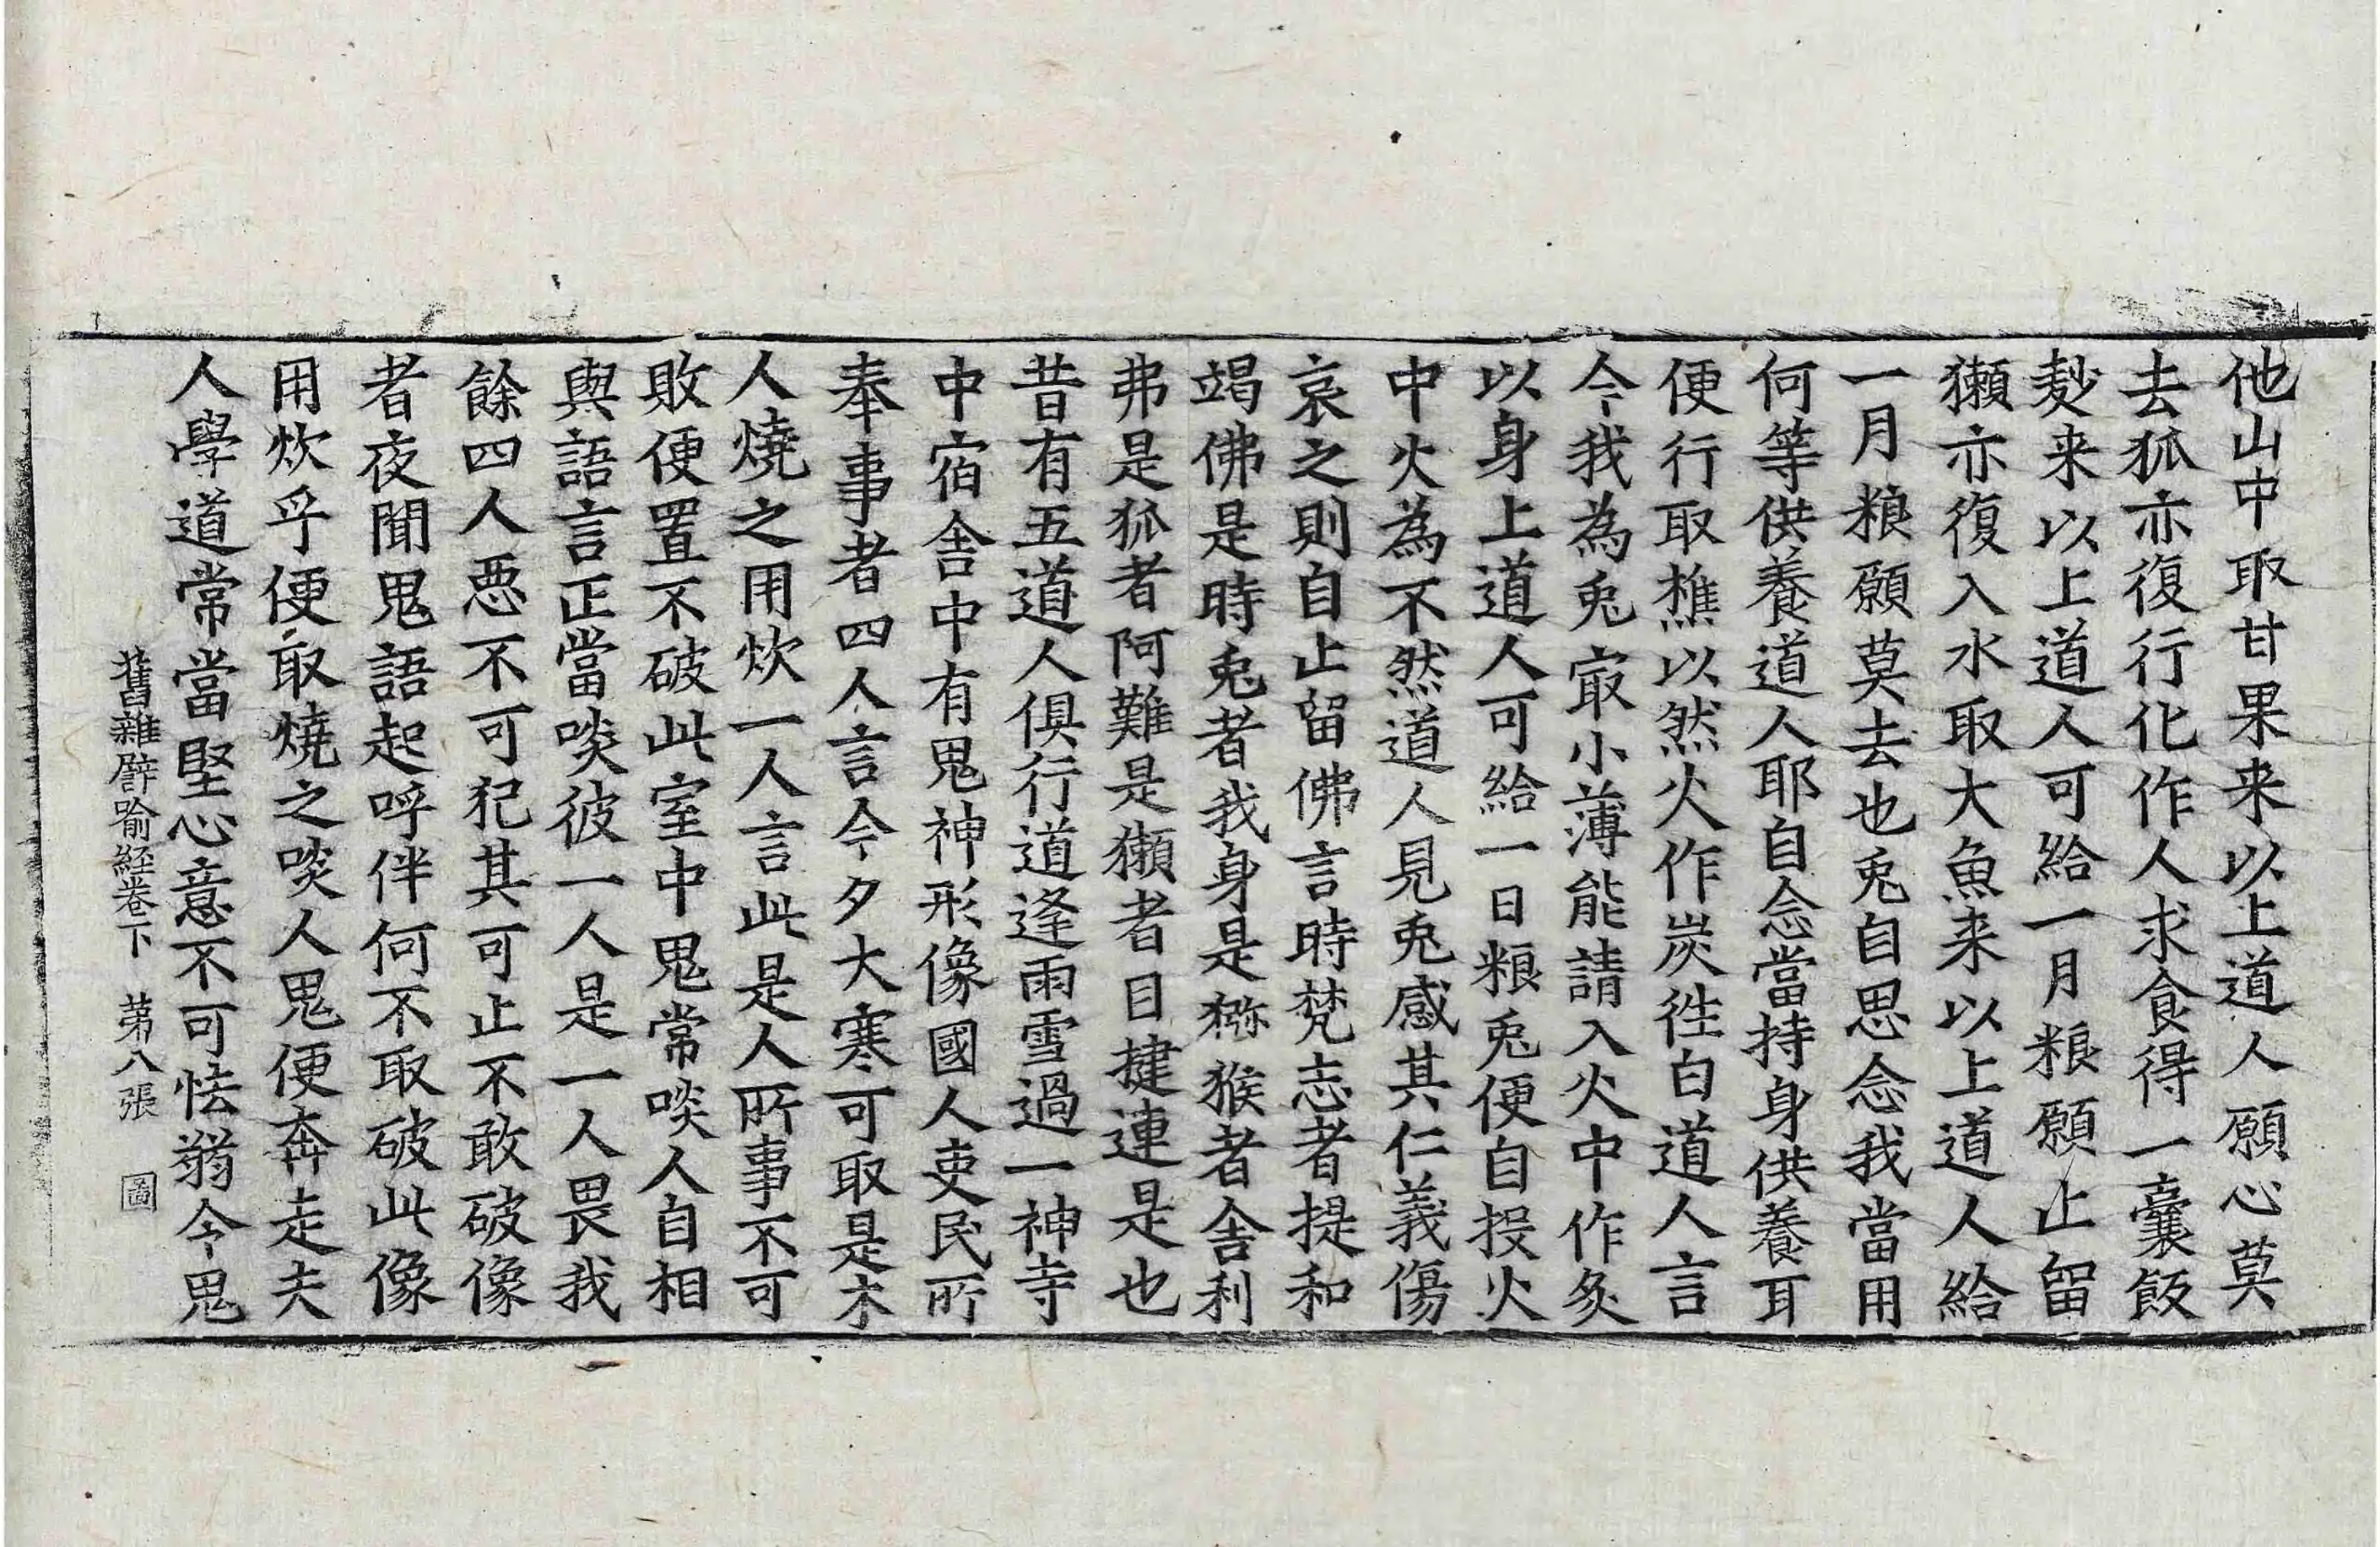 他山中取甘果来以上道人願心莫
去狐亦復行化作人求食得一囊飯
麨来以上道人可給一月粮願止留
獺亦復入水取大魚来以上道人給
一月粮願莫去也兎自思念我當用
何等供養道人耶自念當持身供養耳
便行取樵以然火作炭徃白道人言
今我為兎㝡小薄能請入火中作炙
以身上道人可給一日粮兎便自投火
中火為不然道人見兎感其仁義傷
哀之則自止留佛言時梵志者提和
竭佛是時兎者我身是獼猴者舍利
弗是狐者阿難是獺者目揵連是也
昔有五道人俱行道逢雨雪過一神寺
中宿舍中有鬼神形像國人吏民所
奉事者四人言今夕大寒可取是木
人燒之用炊一人言此是人所事不可
敗便置不破此室中鬼常啖人自相
與語言正當啖彼一人是一人畏我
餘四人惡不可犯其可止不敢破像
者夜聞鬼語起呼伴何不取破此像
用炊乎便取燒之啖人鬼便奔走夫
人學道常當堅心意不可怯弱令鬼
舊雜譬喻經卷下　第八張　圖